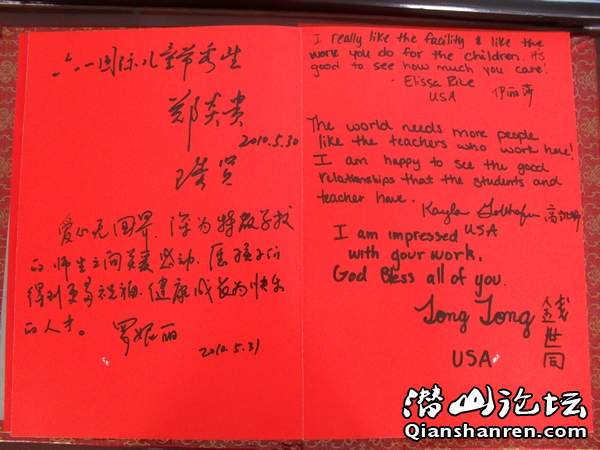 六一国际儿童节
郑炎贵
2010.5.30
爱心无国界，深为特教学校
的师生之间关爱感动，愿孩子们
得到更多祝福，健康成长为快乐
的人才。
罗 丽
2010.5.31
I really like the facility & like the
work you do for the children. It's
good to see how much you care!
- Elissa
USA 伊丽莎
The world needs more people
like the teachers who work here!
I am happy to see the good
relationships that the students and
teacher have.
Kayla
USA
I am impressed
with your work.
God Bless all of you.
Tong Tong
USA
潜山论坛
Qianshanren.com